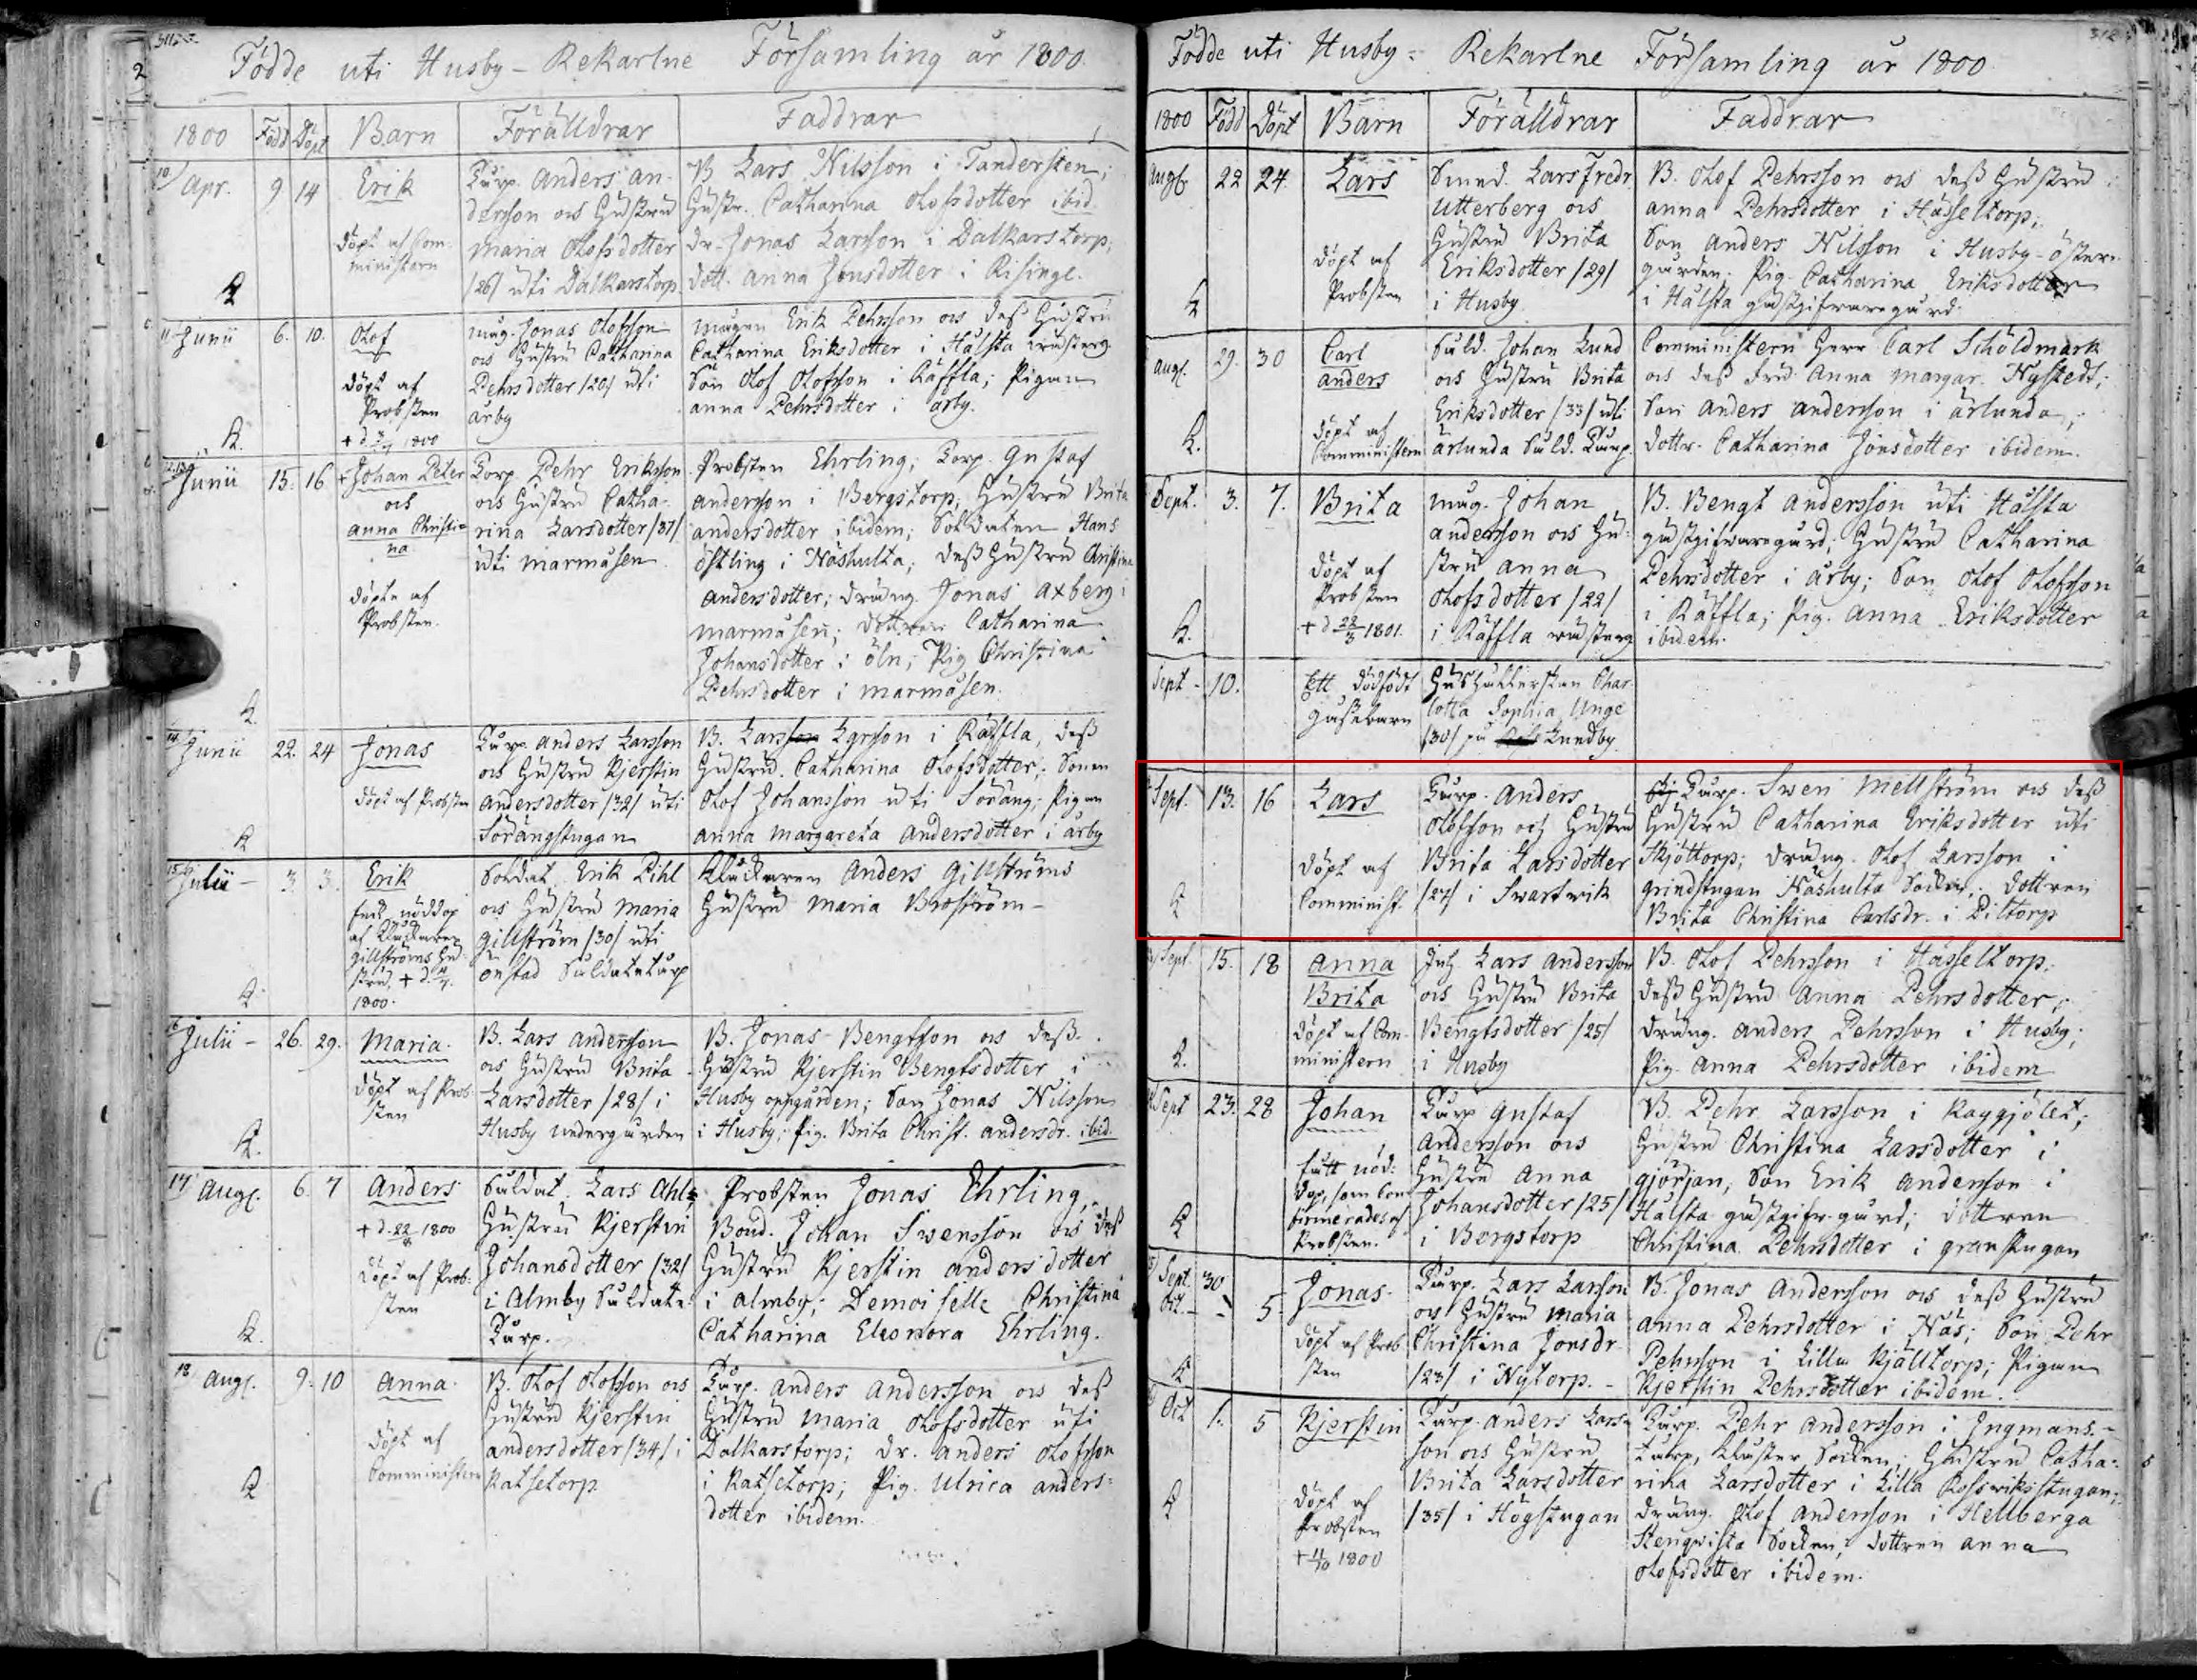 311
2
Födde uti Husby-Rekarlne Församling år 1800.
1800 Född Döpt Barn Förälldrar Faddrar
10
Apr. 9 14 Erik
Döpt af Com-
ministern
Torp. Anders An-
dersson ock Hustru
Maria Olofsdotter
/26/ uti Dalkarstorp.
B. Lars Nilsson i Tandersten;
Hustr. Catharina Olofsdotter ibid.
Dr. Jonas Larsson i Dalkarstorp;
dott. Anna Jonsdotter i Risinge.
11 Junii 6. 10. Olof
döpt af
Probsten
+ d. 1800
Måg. Jonas Olofsson
ock Hustru Catharina
Pehrsdotter /20/ uti
Årby
Mågen Erik Pehrsson ock deß Hustru
Catharina Eriksdotter i Hålsta
Son Olof Olofsson i Räffla; Pigan
Anna Pehrsdotter i Årby.
Junii 15. 16 + Johan Peter
ock
Anna Christi-
na
döpte af
Probsten.
Torp Pehr Eriksson
ock Hustru Catha-
rina Larsdotter /37/
uti Marmåsen
Probsten Ehrling; Torp. Gustaf
Andersson i Bergstorp; Hustru Brita
Andersdotter ibidem; Soldaten Hans
Östling i Näshulta; deß Hustru Christina
Andersdotter; Dräng. Jonas Axberg i
Marmåsen; Dottren Catharina
Johansdotter i Öln; Pig. Christina
Pehrsdotter i Marmåsen.
14 Junii 22. 24 Jonas
döpt af Probsten
Torp. Anders Larsson
ock Hustru Kjerstin
Andersdotter /32/ uti
Sörängstugan
B. Lars Larsson i Räffla, deß
Hustru. Catharina Olofsdotter; Sonen
Olof Johansson uti Söräng; Pigan
Anna Margareta Andersdotter i Årby
15 Julii - 3. 3. Erik
fick nöddop
af Klockaren
Gillströms Hu-
stru, + d.
1800.
Soldat. Erik Pihl
ock Hustru Maria
Gillström /30/ uti
Önstad Soldatetorp
Klockaren Anders Gillströms
Hustru Maria Broström -
16 Julii - 26. 29. Maria.
döpt af Prob-
sten
B. Lars Andersson
ock Hustru Brita
Larsdotter /28/ i
Husby undergården
B. Jonas Bengtsson ock deß
Hustru Kjerstin Bengtsdotter i
Husby oppgården; Son Jonas Nilsson
i Husby; Pig. Brita Christ. Andersdr. ibid.
17 Aug. 6. 7 Anders
+ d. 22/8 1800
Döpt af Prob-
sten
Soldat. Lars Ahl
Hustru Kjerstin
Johansdotter /32/
i Almby Soldate-
Torp.
Probsten Jonas Ehrling;
Bond. Johan Swensson ock deß
Hustru Kjerstin Andersdotter
i Almby; Demoiselle Christina
Catharina Eleonora Ehrling.
18 Aug. 9. 10 Anna.
Döpt af
Comministern
B. Olof Olofsson ock
Hustru Kjerstin
Andersdotter /34/ i
Katsetorp
Torp. Anders Andersson ock deß
Hustru Maria Olofsdotter uti
Dalkarstorp; Dr. Anders Olofsson
i Katsetorp; Pig. Ulrica Anders-
dotter ibidem.
312
Födde uti Husby-Rekarlne Församling år 1800
1800 Född Döpt Barn Förälldrar Faddrar
Aug. 22 24 Lars
döpt af
Probsten
Smed. Lars Fredr
Utterberg ock
Hustru Brita
Eriksdotter /29/
i Husby
B. Olof Pehrsson ock deß Hustru
Anna Pehrsdotter i Hässeltorp;
Son Anders Nilsson i Husby-Öster-
gården. Pig. Catharina Eriksdotter
i Hålsta gästgifvaregård.
Aug. 29. 30 Carl
Anders
döpt af
Comministern
Sold. Johan Lund
ock Hustru Brita
Eriksdotter /33/ uti
Ärlunda Sold. Torp.
Comministern Herr Carl Schöldmark
ock deß Fru Anna Margar. Nystedt;
Son Anders Andersson i Ärlunda;
Dottr. Catharina Jönsdotter ibidem.
Sept. 3. 7. Brita
döpt af
Probsten
+ d 22/3 1801.
Måg. Johan
Andersson ock Hu-
stru Anna
Olofsdotter /22/
i Räffla
B. Bengt Andersson uti Hålsta
gästgifvaregård; Hustru Catharina
Pehrsdotter i Årby; Son Olof Olofsson
i Räffla; Pig. Anna Eriksdotter
ibidem.
Sept - 10. Ett dödfödt
gåssebarn
Hushållerskan Char-
lotta Sophia Unge
/30/ på Lundby.
Sept. 13. 16 Lars
döpt af
Comminist.
Torp. Anders
Olofsson och Hustru
Brita Larsdotter
/27/ i Swartwik
Torp. Swen Mellström ock deß
Hustru Catharina Eriksdotter uti
Skjöttorp; Dräng. Olof Larsson i
Grindstugan Näshulta Socken; Dottren
Brita Christina Carlsdr. i Piltorp
Sept. 15. 18 Anna
Brita
Döpt af Com-
ministern
Inh. Lars Andersson
ock Hustru Brita
Bengtsdotter /25/
i Husby
B. Olof Pehrsson i Hässeltorp;
deß Hustru Anna Pehrsdotter;
Dräng. Anders Pehrsson i Husby;
Pig. Anna Pehrsdotter ibidem
Sept 23. 28 Johan
fått nöd-
dop, som con-
firmerades af
Probsten.
Torp Gustaf
Andersson ock
Hustru Anna
Johansdotter /25/
i Bergstorp
B. Pehr Larsson i Kaggjölet;
Hustru Christina Larsdotter i
Gjörjan; Son Erik Andersson i
Hålsta gästgifr. gård; Dottren
Christina Pehrsdotter i Granstugan
Sept. 30
Oct. - 5. Jonas.
Döpt af Prob-
sten
Torp. Lars Larsson
ock Hustru Maria
Christina Jonsdr.
/23/ i Nytorp. -
B. Jonas Andersson ock deß Hustru
Anna Pehrsdotter i Näs; Son Pehr
Pehrsson i Lilla Kjälltorp; Pigan
Kjerstin Pehrsdotter ibidem.
Oct 1. 5 Kjerstin
Döpt af
Probsten
+ 11/10 1800
Torp. Anders Lars-
son ock Hustru
Brita Larsdotter
/35/ i Högstugan
Torp. Pehr Andersson i Ingmans-
torp, Kloster Socken; Hustru Catha-
rina Larsdotter i Lilla Rosswiksstugan;
Dräng. Olof Andersson i Hellberga
Stenqvista Socken; Dottren Anna
Olofsdotter ibidem.